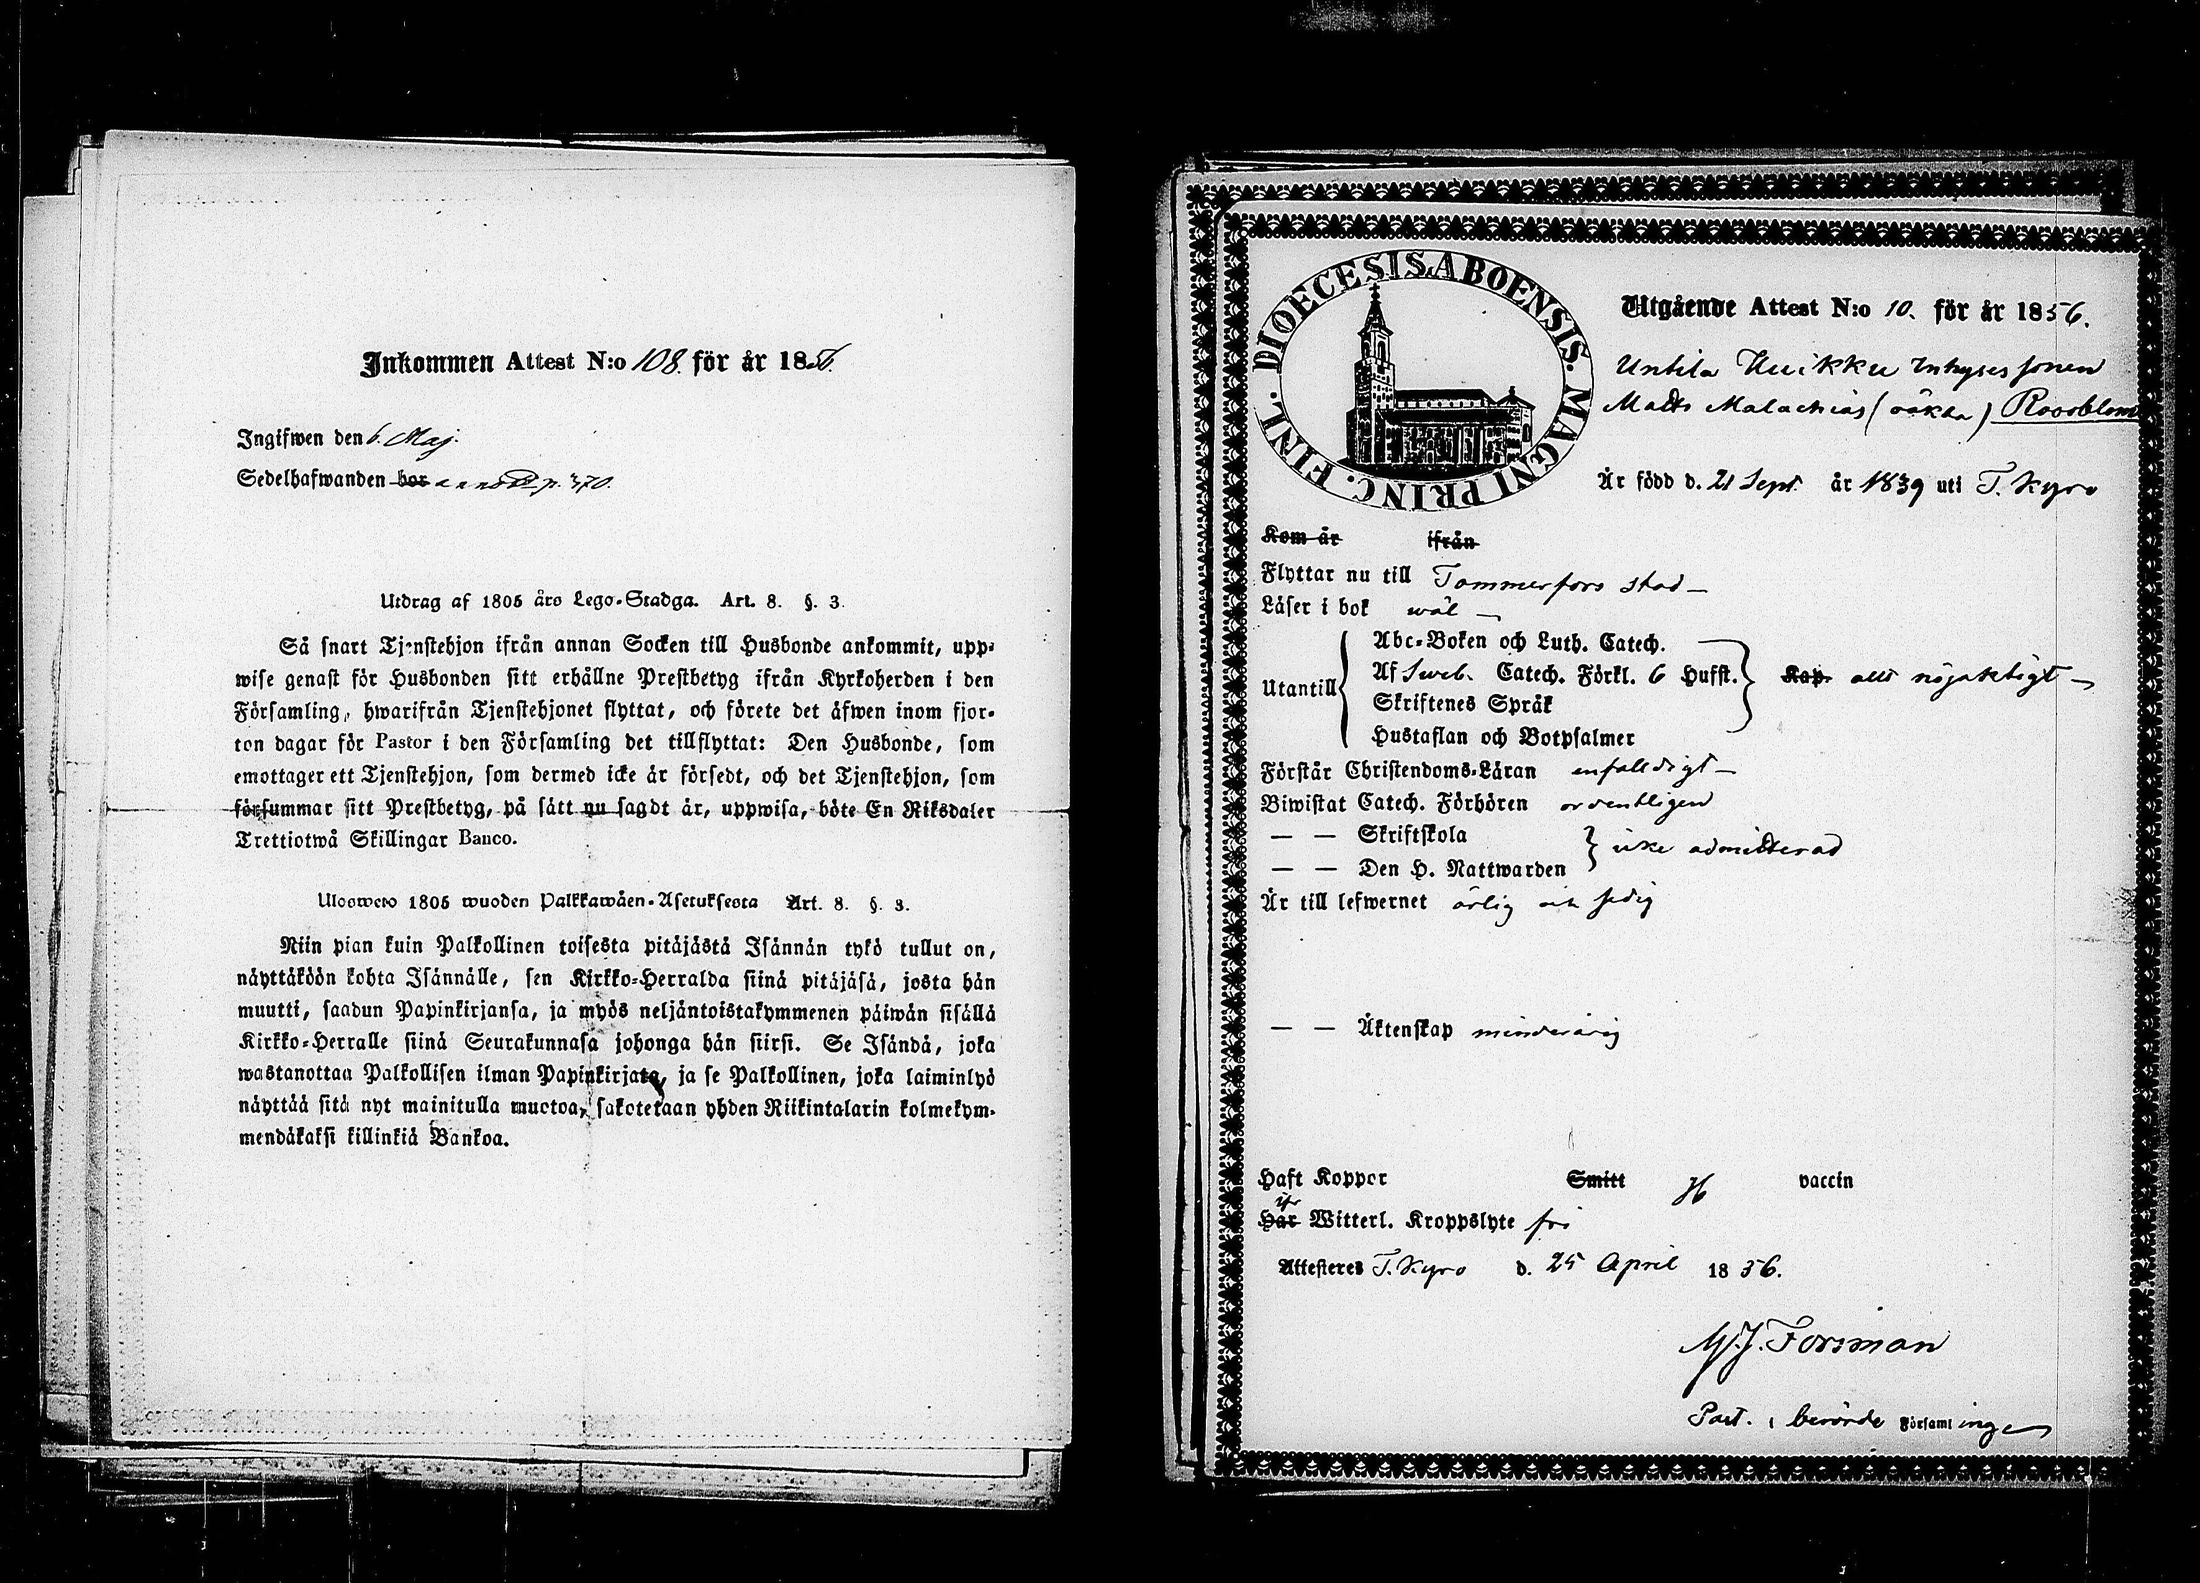 Inkommen Attest N:o 108. för år 1856.
Ingifwen den 6. Maj.
Sedelhafwanden bor annot. p. 370.
Utdrag af 1805 års Lego-Stadga. Art. 8. §. 3.
Så snart Tjenstehjon ifrån annan Socken till Husbonde ankommit, upp-
wise genast för Husbonden sitt erhållne Prestbetyg ifrån Kyrkoherden i den
Församling, hwarifrån Tjenstehjonet flyttat, och förete det äfwen inom fjor-
ton dagar för Pastor i den Församling det tillflyttat: Den Husbonde, som
emottager ett Tjenstehjon, som dermed icke är försedt, och det Tjenstehjon, som
försummar sitt Prestbetyg, på sätt nu sagdt är, uppwisa, böte En Riksdaler
Trettiotwå Skillingar Banco.
Ulosweto 1805 wuoden Palkkawäen-Asetuksesta Art. 8. §. 3.
Niin pian kuin Palkollinen toisesta pitäjästä Isännän tykö tullut on,
näyttäköön kohta Isännälle, sen Kirkko-Herralda siinä pitäjäsä, josta hän
muutti, saadun Papinkirjansa, ja myös neljäntoistakymmenen päiwän sisällä
Kirkko-Herralle siinä Seurakunnasa johonga hän siirsi. Se Isändä, joka
wastanottaa Palkollisen ilman Papinkirjata, ja se Palkollinen, joka laiminlyö
näyttää sitä nyt mainitulla muotoa, sakotetaan yhden Riikintalarin kolmekym-
mendäkaksi killinkiä Bankoa.
DIOECESIS ABOENSIS. MAGNI PRINC. FINL.
Utgående Attest N:o 10. för år 1856.
Untila Huikku Inhyses sonen
Matts Malachias (oäkta) Roosblom
Är född d. 21 Sept. år 1839 uti T. Kyro
Kom år ifrån
Flyttar nu till Tammerfors stad
Läser i bok wäl
Utantill
Abc-Boken och Luth. Catech.
Af Sweb. Catech. Förkl. 6 Hufst. Kap. allt nöjaktigt
Skriftenes Språk
Hustaflan och Botpsalmer
Förstår Christendoms-Läran enfalldigt
Biwistat Catech. Förhören ordentligen
— — Skriftskola
icke admitterad
— — Den H. Nattwarden
Är till lefwernet ärlig och sedig
— — Äktenskap minderårig
Haft Koppor Smitt vaccin
Har Witterl. Kroppslyte fri
Attesteres T. Kyro d. 25 April 1856.
M. J. Forsman
Past. i berörde Församlingen